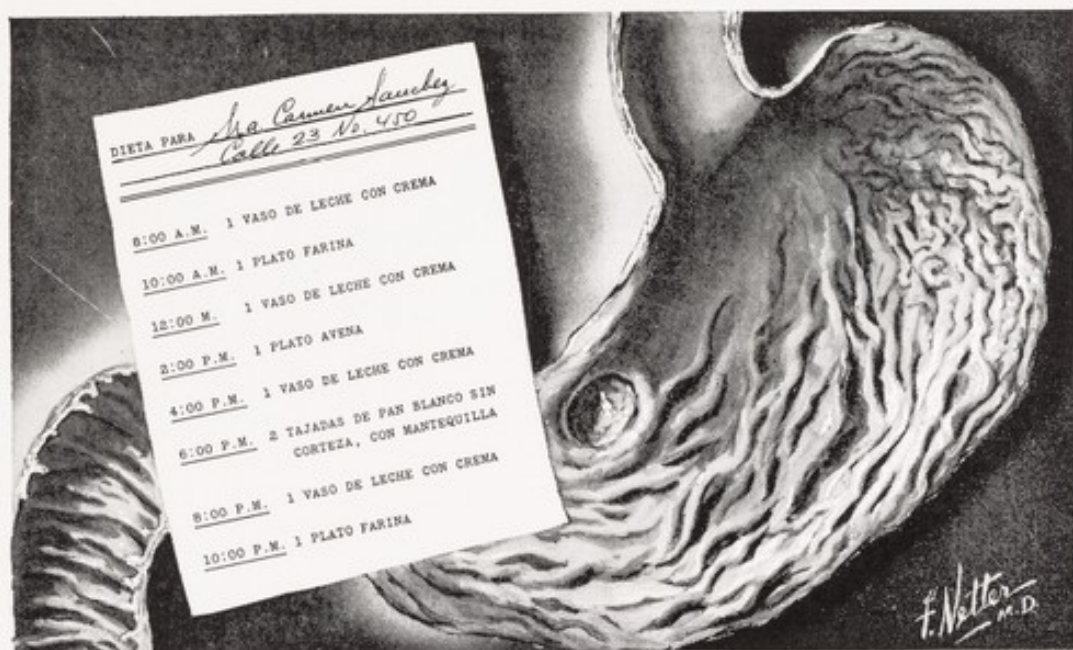 DIETA PARA Sra Carmen Sanchez
Calle 23 No. 450
8:00 A.M. 1 VASO DE LECHE CON CREMA
10:00 A.M. 1 PLATO FARINA
12:00 M. 1 VASO DE LECHE CON CREMA
2:00 P.M. 1 PLATO AVENA
4:00 P.M. 1 VASO DE LECHE CON CREMA
6:00 P.M. 2 TAJADAS DE PAN BLANCO SIN
CORTEZA, CON MANTEQUILLA
8:00 P.M. 1 VASO DE LECHE CON CREMA
10:00 P.M. 1 PLATO FARINA
F. Netter
M.D.